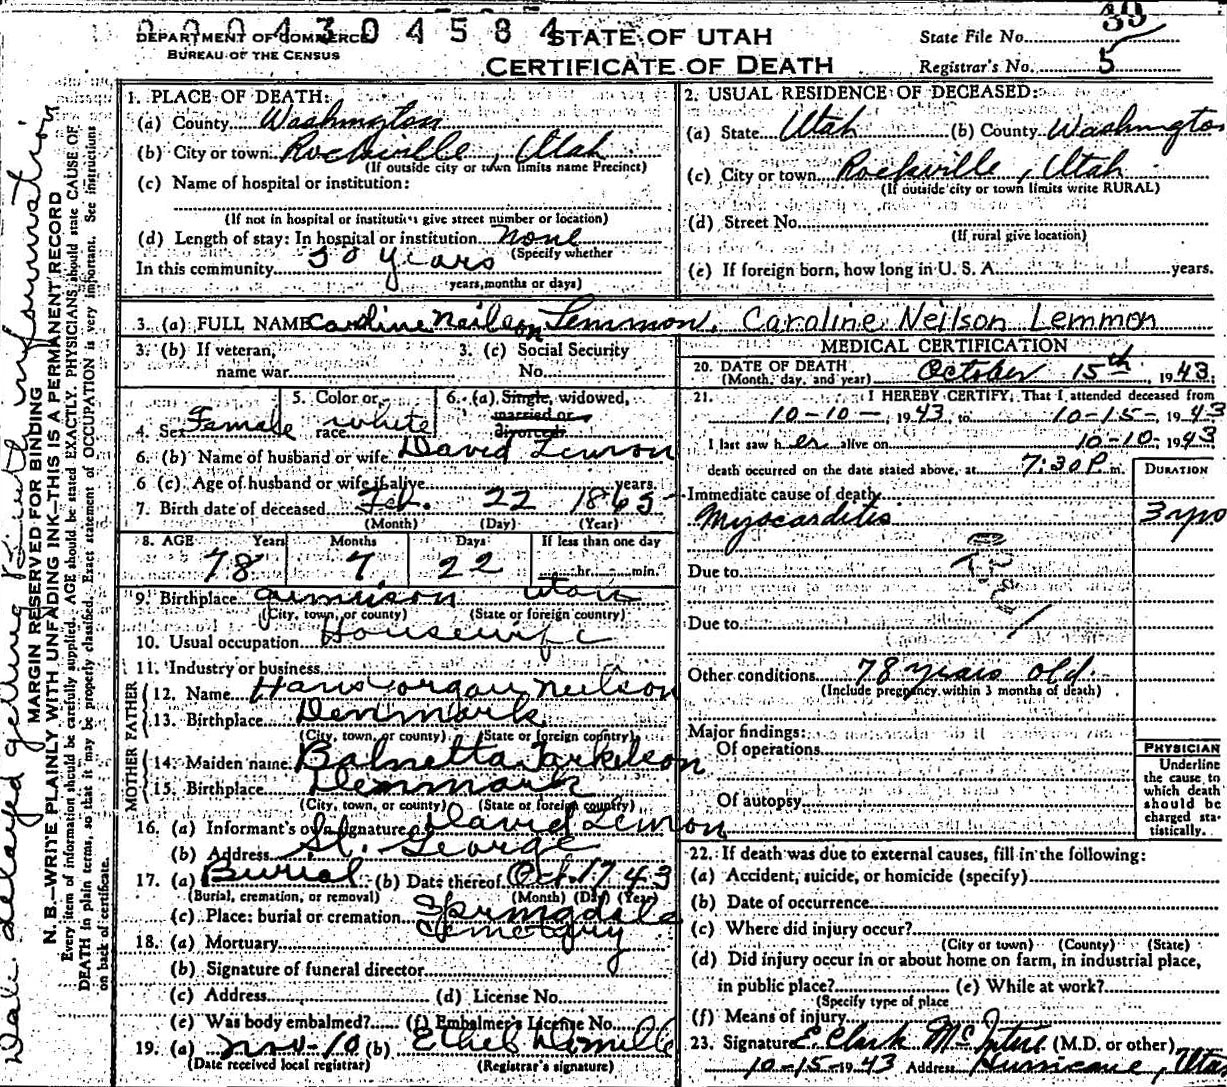 0 0 0 4 3 0 4 5 8 4
39
DEPARTMENT OF COMMERCE
BUREAU OF THE CENSUS
STATE OF UTAH
CERTIFICATE OF DEATH
State File No.
Registrar's No. 5
1. PLACE OF DEATH:
(a) County Washington
(b) City or town Rockville, Utah
(If outside city or town limits name Precinct)
(c) Name of hospital or institution:
(If not in hospital or institution give street number or location)
(d) Length of stay: In hospital or institution none
(Specify whether
In this community 50 years
years, months or days)
2. USUAL RESIDENCE OF DECEASED:
(a) State Utah (b) County Washington
(c) City or town Rockville, Utah
(If outside city or town limits write RURAL)
(d) Street No.
(If rural give location)
(e) If foreign born, how long in U. S. A. years.
3. (a) FULL NAME Caroline Neilson Lemmon. Caroline Neilson Lemmon
3. (b) If veteran,
name war
3. (c) Social Security
No.
4. Sex Female
5. Color or
race white
6. (a) Single, widowed,
married or
divorced
6. (b) Name of husband or wife David Lemon
6 (c). Age of husband or wife if alive years.
7. Birth date of deceased Feb. 22 1865
(Month) (Day) (Year)
8. AGE Years Months Days If less than one day
78 7 22 hr. min.
9. Birthplace Utah
(City, town, or county) (State or foreign country)
10. Usual occupation Housewife
11. Industry or business
FATHER
12. Name Hans Neilson
13. Birthplace Denmark
(City, town, or county) (State or foreign country)
MOTHER
14. Maiden name
15. Birthplace Denmark
(City, town, or county) (State or foreign country)
16. (a) Informant's own signature David Lemon
(b) Address St. George
17. (a) Burial (b) Date thereof Oct. 17 43
(Burial, cremation, or removal) (Month) (Day) (Year)
(c) Place: burial or cremation Springdale
Cemetery
18. (a) Mortuary
(b) Signature of funeral director
(c) Address (d) License No.
(e) Was body embalmed? (f) Embalmer's License No.
19. (a) Nov-10 (b) Ethel DeMille
(Date received local registrar) (Registrar's signature)
MEDICAL CERTIFICATION
20. DATE OF DEATH
(Month, day, and year) October 15th, 1943.
21. I HEREBY CERTIFY, That I attended deceased from
10-10-, 1943, to 10-15-, 1943
I last saw her alive on 10-10-, 1943
death occurred on the date stated above, at 7:30 P. m.
DURATION
Immediate cause of death
Myocarditis 3 yrs
Due to
Due to
Other conditions 78 years old.
(Include pregnancy within 3 months of death)
Major findings:
Of operations
Of autopsy
PHYSICIAN
Underline
the cause to
which death
should be
charged sta-
tistically.
22. If death was due to external causes, fill in the following:
(a) Accident, suicide, or homicide (specify)
(b) Date of occurrence
(c) Where did injury occur?
(City or town) (County) (State)
(d) Did injury occur in or about home on farm, in industrial place,
in public place? (e) While at work?
(Specify type of place
(f) Means of injury
23. Signature E. Clark McIntire (M.D. or other)
10-15-1943 Address Hurricane, Utah
Date delayed getting Birth information
MARGIN RESERVED FOR BINDING
N. B.—WRITE PLAINLY WITH UNFADING INK—THIS IS A PERMANENT RECORD
Every item of information should be carefully supplied. AGE should be stated EXACTLY. PHYSICIANS should state CAUSE OF
DEATH in plain terms, so that it may be properly classified. Exact statement of OCCUPATION is very important. See instructions
on back of certificate.